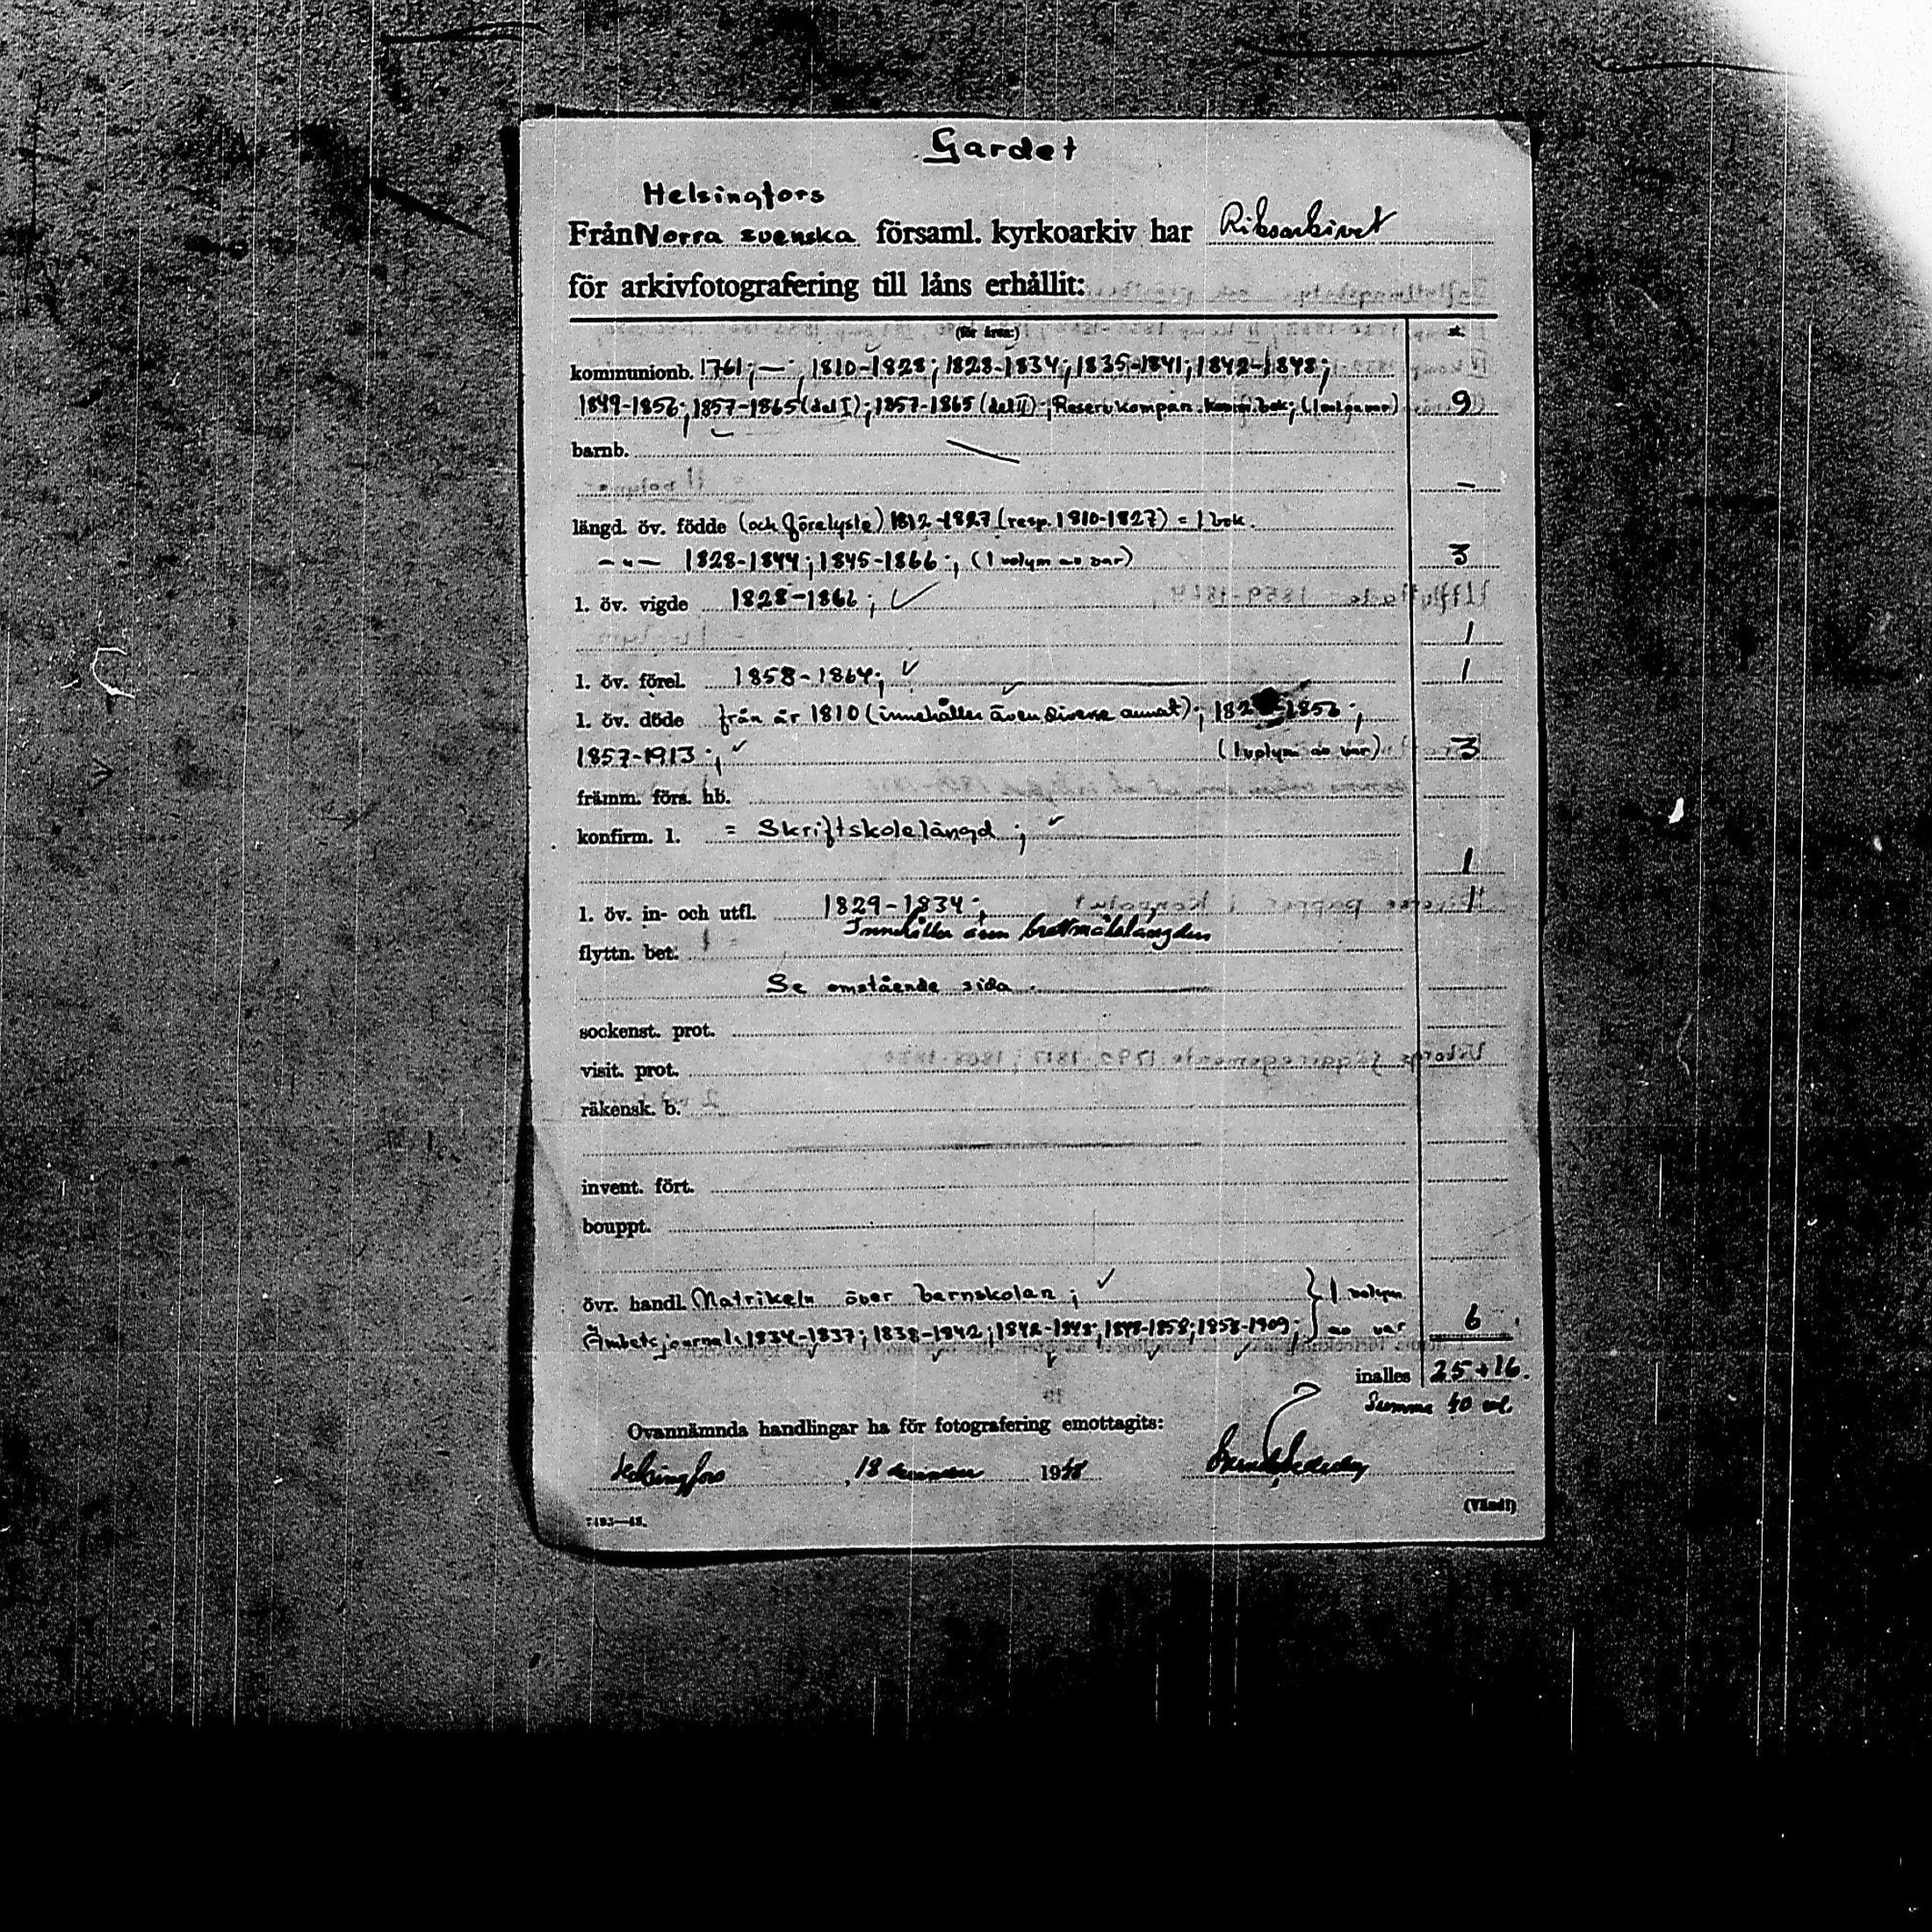 Gardet
Helsingfors
Från Norra svenska församl. kyrkoarkiv har Riksarkivet
för arkivfotografering till låns erhållit:
(för åren:) st.
kommunionb. 1761; — ; 1810-1828; 1828-1834; 1835-1841; 1842-1848;
1849-1856; 1857-1865 (del I); 1857-1865 (del II); Reservkompan. komm.bok; 9
barnb.
längd. öv. födde (och förelyste) 1812-1827 (resp. 1810-1827) = 1 bok.
—"— 1828-1844; 1845-1866; (1 volym av var) 3
l. öv. vigde 1828-1866; 1
l. öv. förel. 1858-1864; 1
l. öv. döde från år 1810 (innehåller även diverse annat);
1857-1913; (1 volym av var) 3
främm. förs. hb.
konfirm. l. = Skriftskolelängd; 1
l. öv. in- och utfl. 1829-1834; 1
Innehåller även brottmålslängden
flyttn. bet.
Se omstående sida.
sockenst. prot.
visit. prot.
räkensk. b.
invent. fört.
bouppt.
övr. handl. Matrikeln över barnskolan; } 1 volym
Ämbetsjournal: 1834-1837; 1838-1842; 1842-1848; 1848-1858; 1858-1909; } av var 6
inalles 25 + 16.
Summa 40 vol.
Ovannämnda handlingar ha för fotografering emottagits:
Helsingfors, 18 1948
(Vänd!)
7493—48.